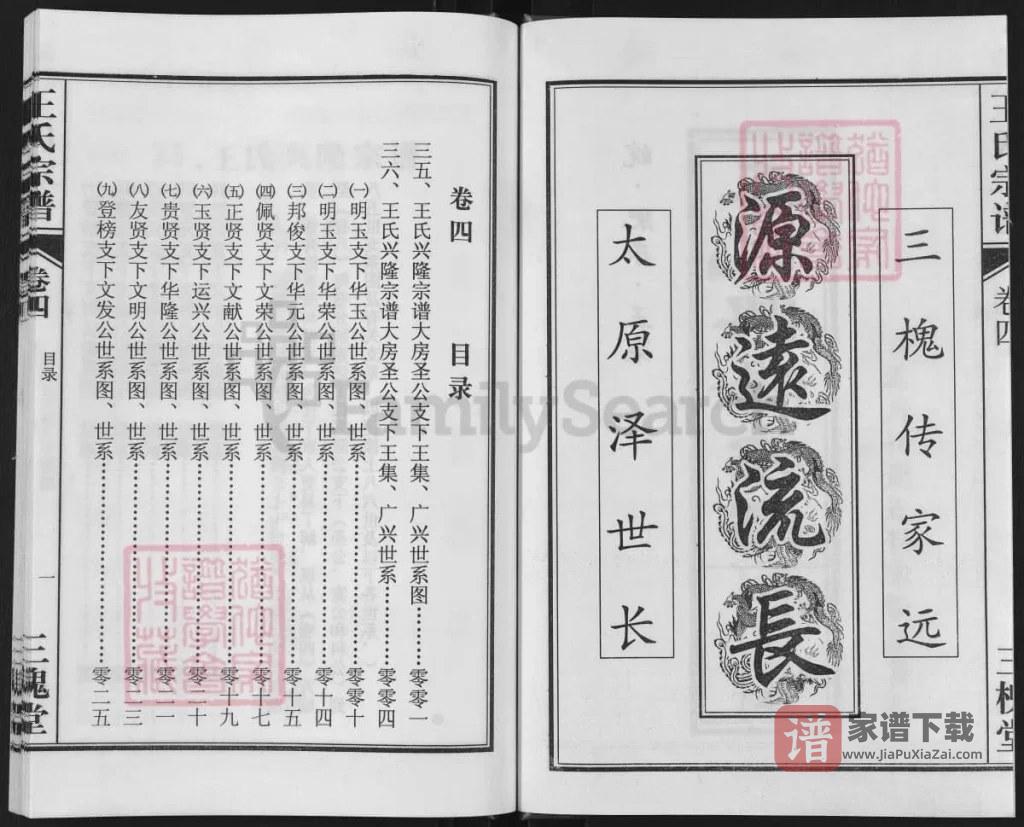 王氏宗谱
卷四
三槐堂
三槐传家远
源遠流長
太原泽世长
卷四 目录
三五、王氏兴隆宗谱大房圣公支下王集、广兴世系图……零零一
三六、王氏兴隆宗谱大房圣公支下王集、广兴世系……零零四
㈠明玉支下华玉公世系图、世系……零零十
㈡明玉支下华荣公世系图、世系……零十四
㈢邦俊支下华元公世系图、世系……零十五
㈣佩贤支下文荣公世系图、世系……零十七
㈤正贤支下文献公世系图、世系……零十九
㈥玉贤支下运兴公世系图、世系……零二十
㈦贵贤支下华隆公世系图、世系……零二一
㈧友贤支下文明公世系图、世系……零二三
㈨登榜支下文发公世系图、世系……零二五
王氏宗谱
卷四
目录
一
三槐堂
FamilySearch
谱
家谱下载
www.JiaPuXiaZai.com